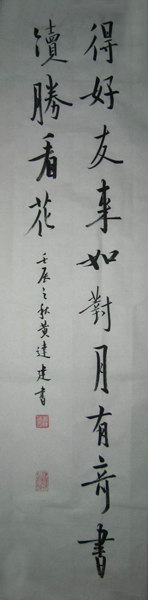 得好友来如對月有奇書
讀勝看花
壬辰之秋黄達建書